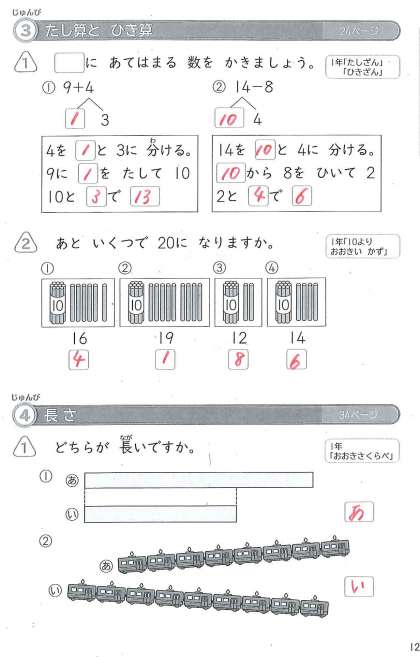 じゅんび
③ たし算と ひき算 24ページ
1 □に あてはまる 数を かきましょう。
1年「たしざん」
「ひきざん」
① 9+4
1 3
4を 1 と 3に 分ける。
9に 1 を たして 10
10と 3 で 13
② 14-8
10 4
14を 10 と 4に 分ける。
10 から 8を ひいて 2
2と 4 で 6
2 あと いくつで 20に なりますか。
1年「10より
おおきい かず」
① ② ③ ④
10 10 10 10
16 19 12 14
4 1 8 6
じゅんび
④ 長さ 34ページ
1 どちらが 長いですか。
1年
「おおきさくらべ」
① あ
い
あ
② あ
い
い
12